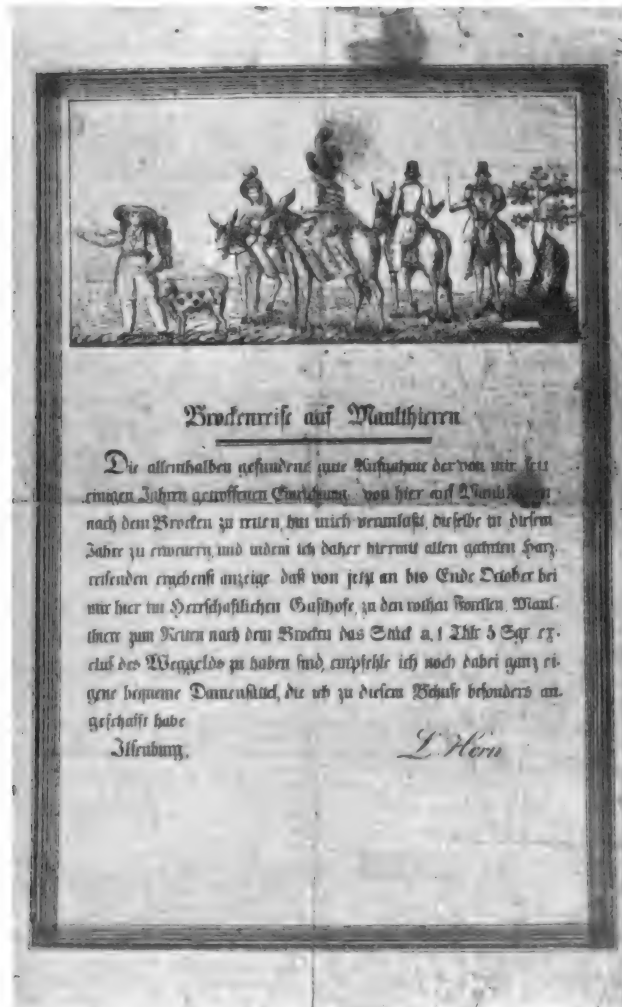 Brockenreise auf Maulthieren
Die allenthalben gefundene gute Aufnahme der von mir seit
einigen Jahren getroffenen Einrichtung, von hier auf Maulthieren
nach dem Brocken zu reiten, hat mich veranlaßt, dieselbe in diesem
Jahre zu erneuern, und indem ich daher hiermit allen geehrten Harz-
reisenden ergebenst anzeige daß von jetzt an bis Ende October bei
mir hier im Herrschaftlichen Gasthofe, zu den rothen Forellen, Maul-
thiere zum Reiten nach dem Brocken das Stück a. 1 Thlr 5 Sgr ex-
clus des Weggelds zu haben sind, empfehle ich noch dabei ganz ei-
gene bequeme Damensättel, die ich zu diesem Behufe besonders an-
geschafft habe
Ilsenburg.
L. Horn